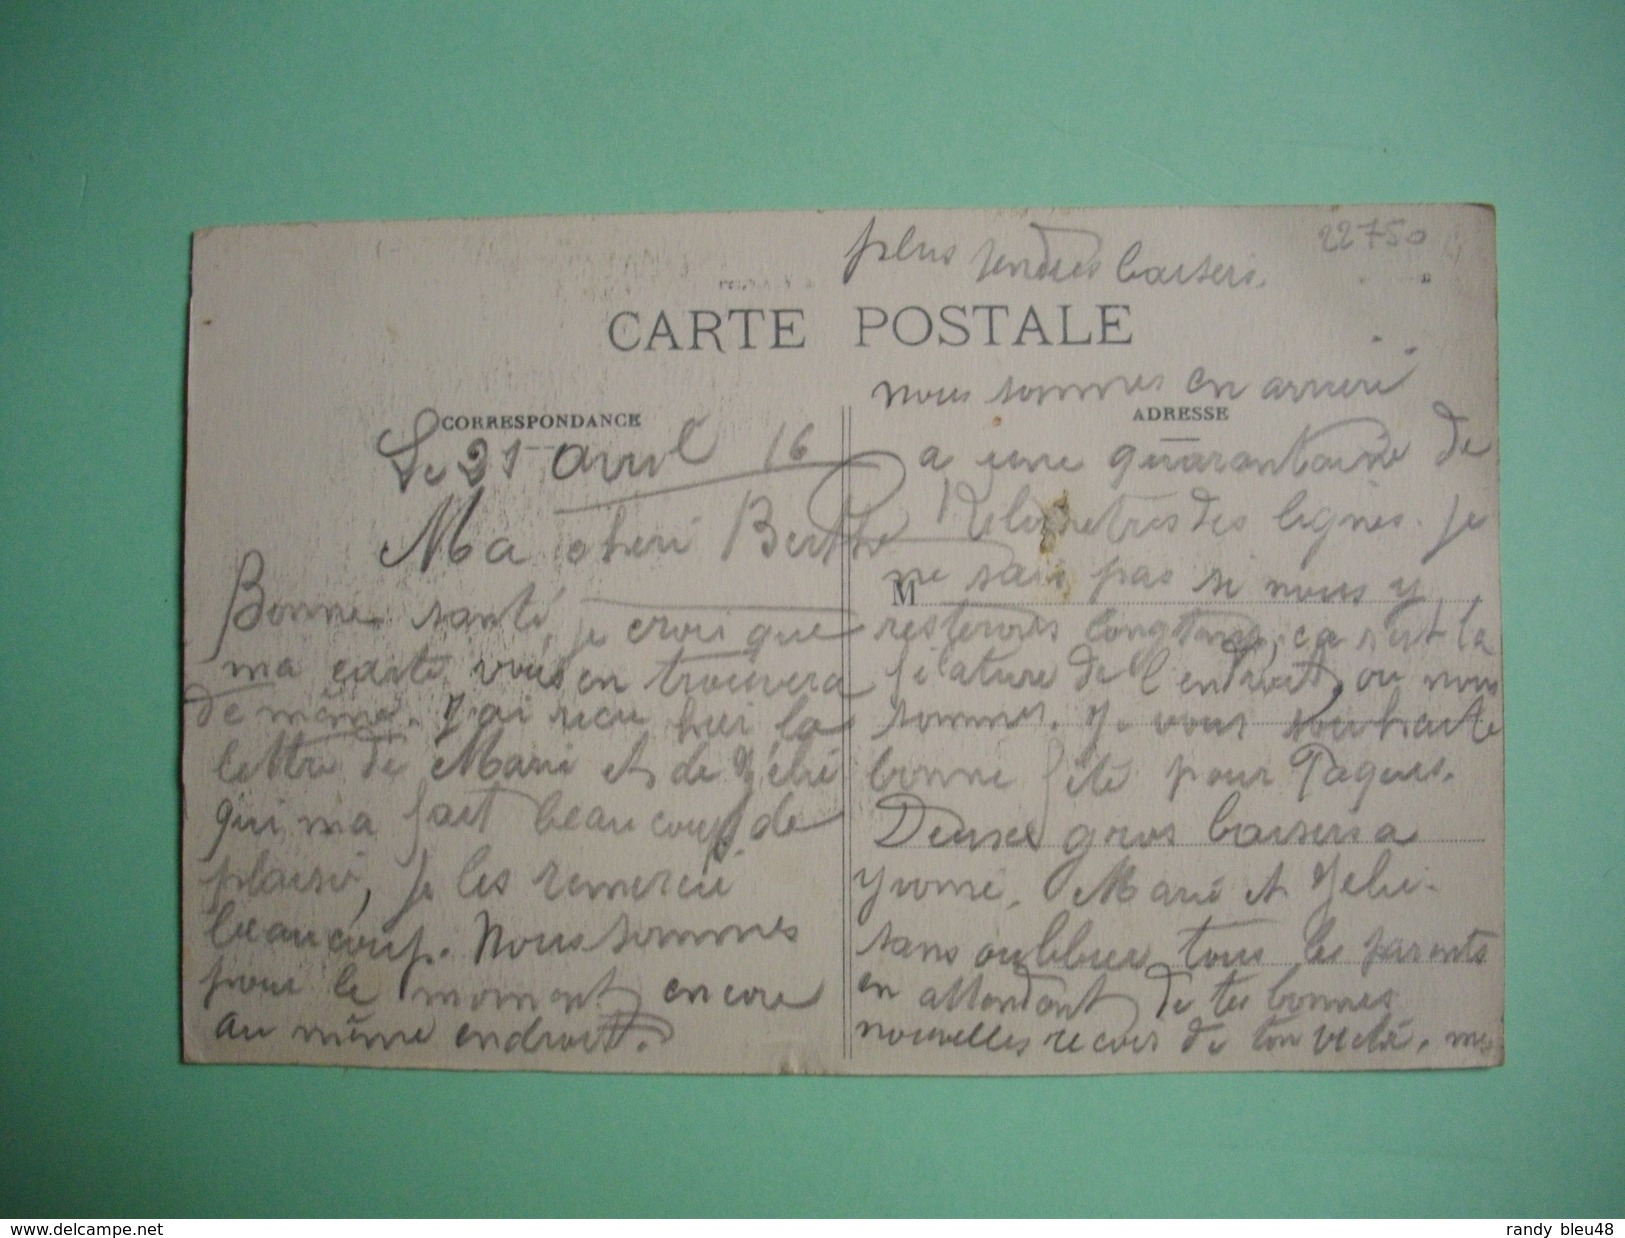 22750
CARTE POSTALE
CORRESPONDANCE
ADRESSE
Le 21 avril 16
Ma cheri Berthe
Bonne santé, je croi que
ma carte vous en trouvera
de même. J'ai recu hier la
lettre de Marie et de Zélie
qui ma fait beaucoup de
plaisir, je les remercie
beaucoup. Nous sommes
pour le moment encore
au même endroit.
nous sommes en arriere
a une quarantaine de
Kilometres des lignes. Je
M
ne sais pas si nous y
resterons longtemps, ca s'est la
filature de l'endroit, ou nous
sommes. Je vous souhaite
bonne fête pour Paques.
Deuxe gros baisers a
Yvonne, Marie et Zelie.
sans oublier tous les parents
en attendant de tes bonnes
nouvelles recois de ton mes
plus tendres baisers.
www.delcampe.net
randy_bleu48